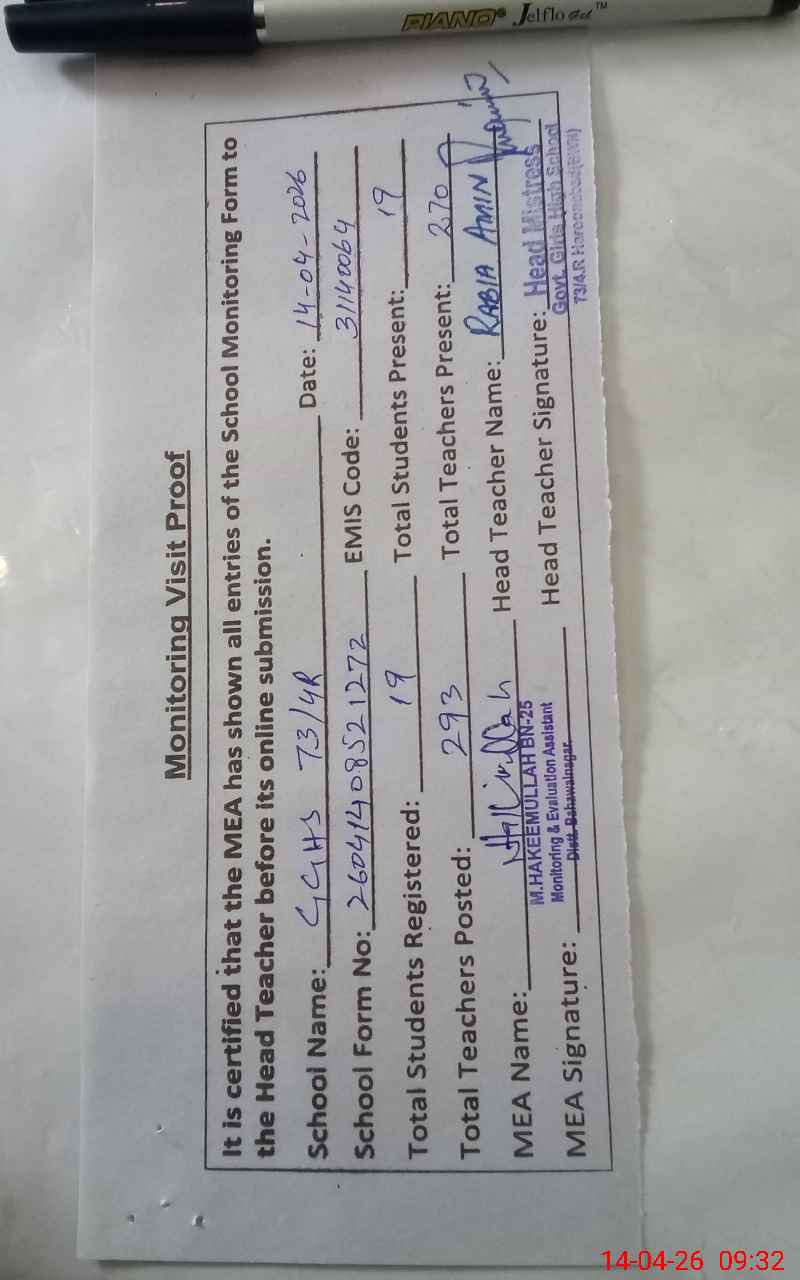 PIANO® Jelflo Gel™
Monitoring Visit Proof
It is certified that the MEA has shown all entries of the School Monitoring Form to
the Head Teacher before its online submission.
School Name: GGHS 73/4R Date: 14-04-2026
School Form No: 26041408521272 EMIS Code: 31140064
Total Students Registered: 19 Total Students Present: 19
Total Teachers Posted: 293 Total Teachers Present: 270
MEA Name: Head Teacher Name: RABIA AMIN
M.HAKEEMULLAH BN-25
Monitoring & Evaluation Assistant
Distt. Bahawalnagar
MEA Signature: Head Teacher Signature: Head Mistress
Govt. Girls High School
73/4.R Haroonabad(BWN)
14-04-26 09:32